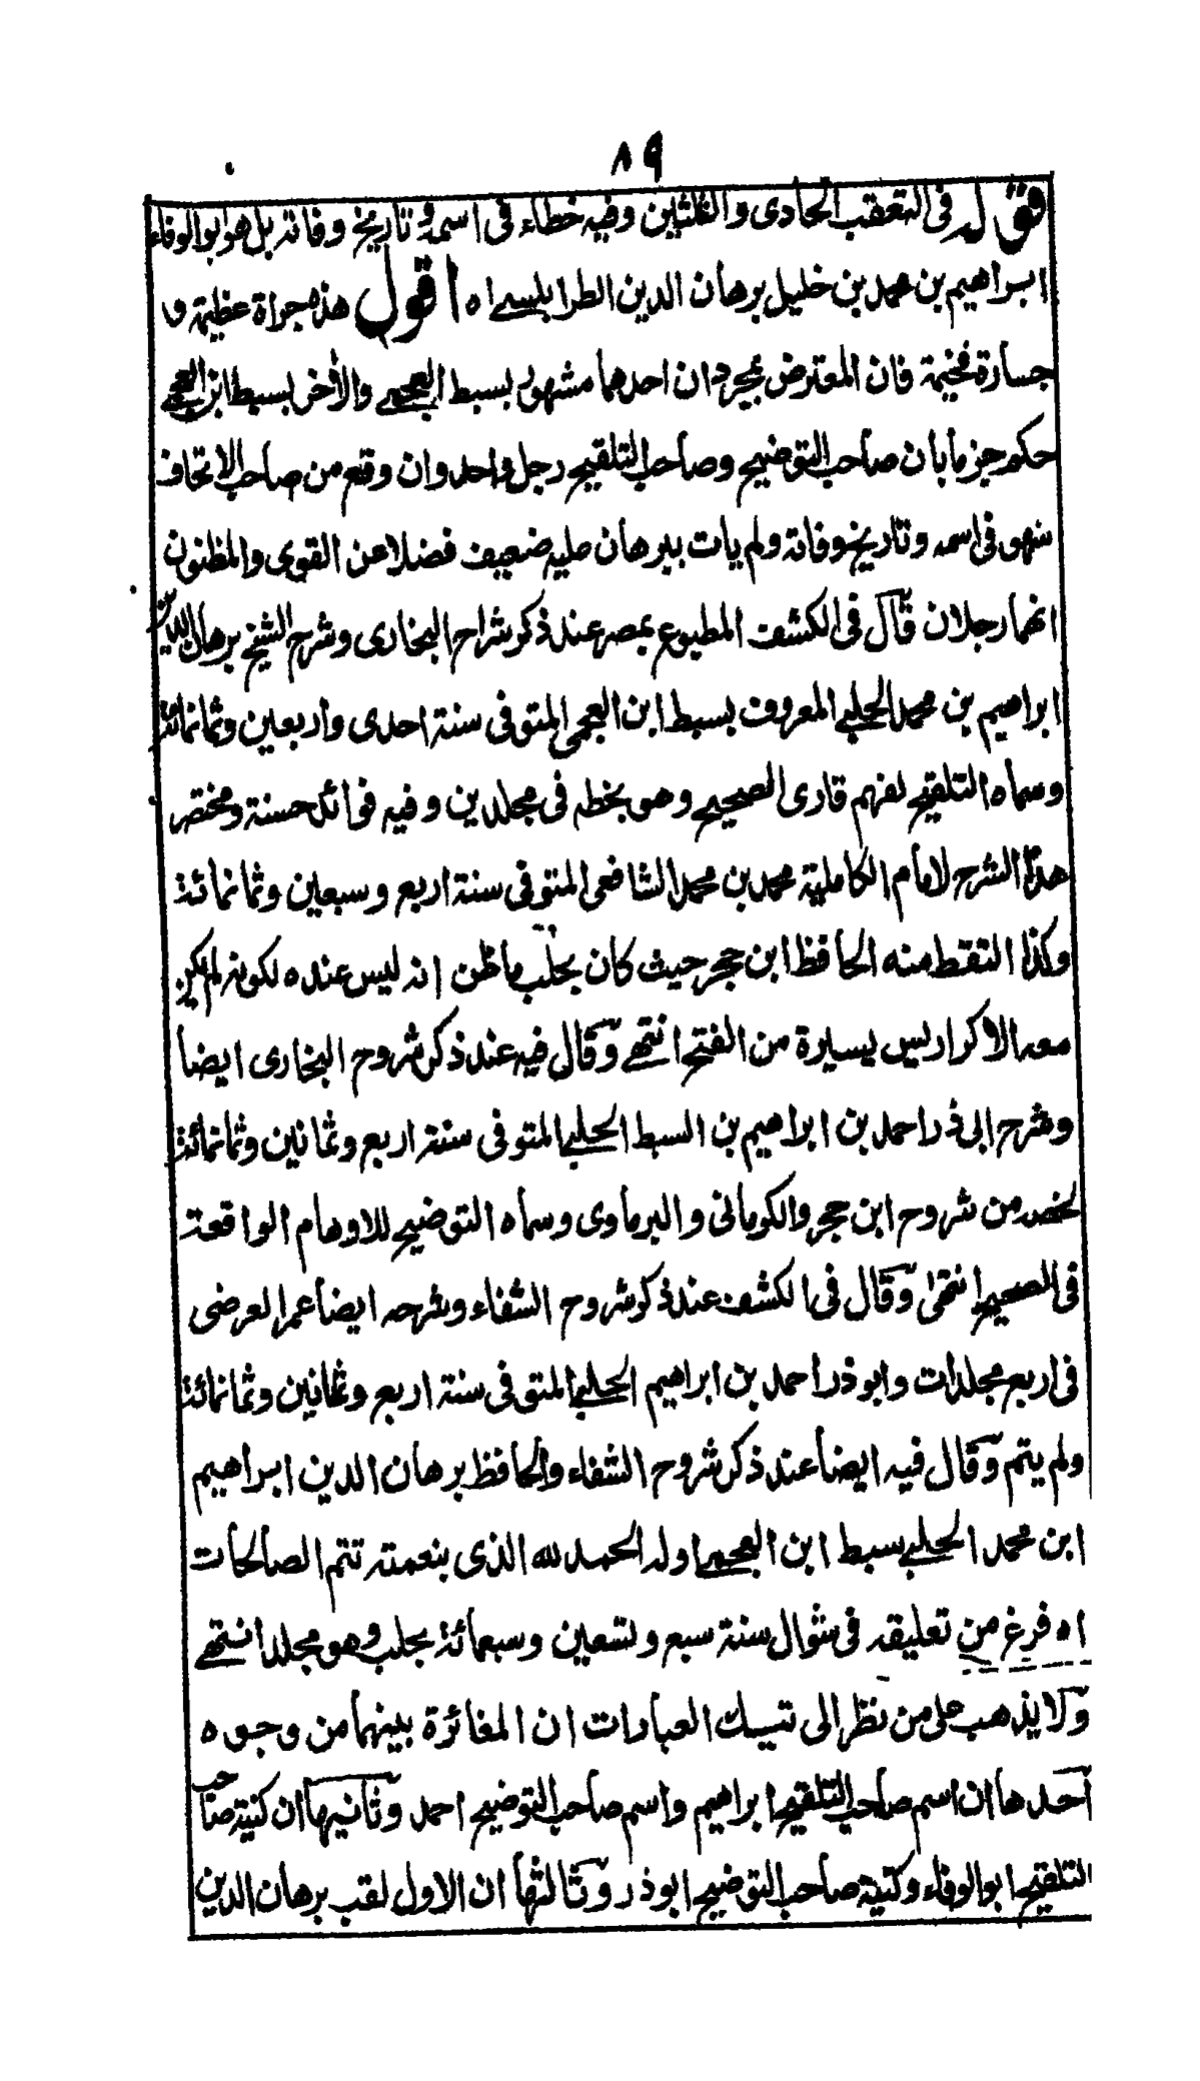 ٨٩
قوله فى التعقب الحادى والثلثين وفيه خطاء فى اسمه وتاريخ وفاته بل هو ابو الوفاء
ابراهيم بن محمد بن خليل برهان الدين الطرابلسے اه اقول هذه جراة عظيمة و
جسارة فخيمة فان المعترض بمجرد ان احدهما مشهور بسبط العجمے والأخر بسبط ابن العجمے
حكم جزما بان صاحب التوضيح وصاحب التلقيح رجل واحد وان وقع من صاحب الاتحاف
سهو فى اسمه وتاريخ وفاته ولم يات ببرهان عليه ضعيف فضلا عن القوى والمظنون
انهما رجلان قال فى الكشف المطبوع بمصر عند ذكر شراح البخارى وشرح الشيخ برهان الدين
ابراهيم بن محمد الحلبے المعروف بسبط ابن العجمى المتوفى سنة احدى واربعين وثمانمائة
وسماه التلقيح لفهم قارى الصحيح وهو بخطه فى مجلدين وفيه فوائد حسنة ومختصر
هذا الشرح لامام الكاملية محمد بن محمد الشافعى المتوفى سنة اربع وسبعين وثمانمائة
وكذا التقط منه الحافظ ابن حجر حيث كان بحلب ماظن انه ليس عنده لكونه لم يكن
معه الاكراريس يسيرة من الفتح انتهے وقال فيه عند ذكر شروح البخارى ايضا
وشرح ابى ذر احمد بن ابراهيم بن السبط الحلبے المتوفى سنة اربع وثمانين وثمانمائة
لخصه من شروح ابن حجر والكرمانى والبرماوى وسماه التوضيح للاوهام الواقعة
فى الصحيح انتهى وقال فى الكشف عند ذكر شروح الشفاء وشرحه ايضا عمر العرضى
فى اربع مجلدات وابو ذر احمد بن ابراهيم الحلبے المتوفى سنة اربع وثمانين وثمانمائة
ولم يتم وقال فيه ايضا عند ذكر شروح الشفاء والحافظ برهان الدين ابراهيم
ابن محمد الحلبے سبط ابن العجمے اوله الحمد لله الذى بنعمته تتم الصالحات
اه فرغ من تعليقه فى شوال سنة سبع وتسعين وسبعمائة بحلب وهو مجلد انتهے
ولا يذهب على من نظر الى تيسك العبارات ان المغائرة بينهما من وجوه
احدها ان اسم صاحب التلقيح ابراهيم واسم صاحب التوضيح احمد وثانيها ان كنية صاحب
التلقيح ابو الوفاء وكنية صاحب التوضيح ابو ذر وثالثها ان الاول لقب برهان الدين